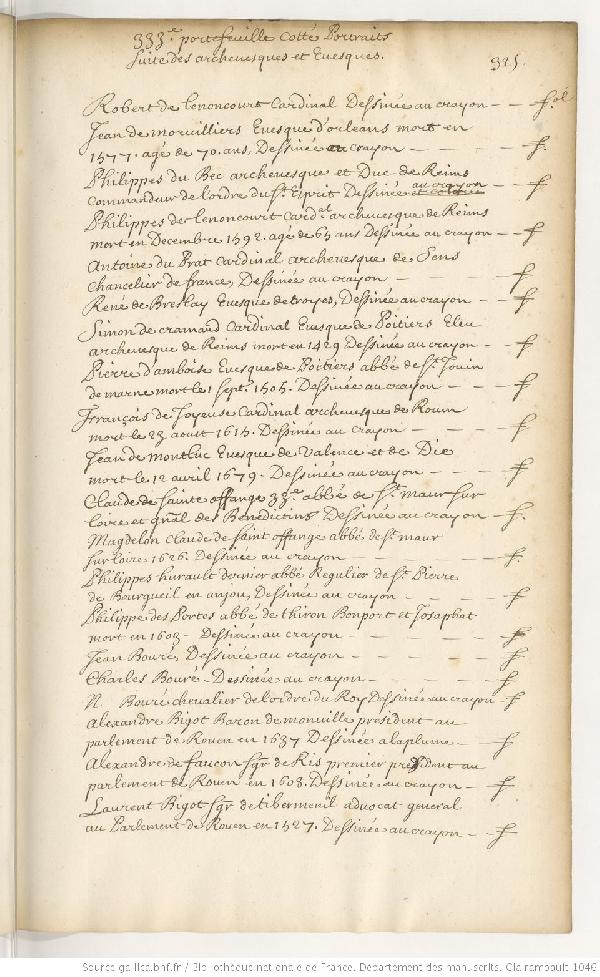 333.e portefeuille Cotté Portraits
Suite des archeuesques et Euesques.
325.
Robert de Lenoncourt Cardinal Dessinée au crayon - - f.ol
Jean de moruilliers Euesque d'orleans mort en
1577. agé de 70. ans, Dessinée au crayon - f.
Philippes du Bec archeuesque et Duc de Reims
commandeur de l'ordre du St. Esprit Dessinée au crayon - f
Philippes de Lenoncourt Card.al archeuesque de Reims
mort en Decembre 1592. agé de 65 ans Dessinée au crayon - f
Antoine du Prat Cardinal archeuesque de Sens
Chancelier de france, Dessinée au crayon - f
René de Breslay Euesque de troyes, Dessinée au crayon - - f
Simon de cramaud Cardinal Euesque de Poitiers Eleu
archeuesque de Reims mort en 1429 Dessinée au crayon - f
Pierre d'amboise Euesque de Poitiers abbé de St. Jouin
de marne mort le 1 Sept. 1505. Dessinée au crayon - - f
François de Joyeuse Cardinal archeuesque de Rouen
mort le 23 aoust 1615. Dessinée au crayon - - f
Jean de montluc Euesque de Valence et de Die
mort le 12 avril 1579. Dessinée au crayon - - f
Claude de Sainte offange 33.e abbé de St. maur sur
loire et gnāl des Benedictins Dessinée au crayon - f.
Magdelon Claude de Saint offange abbé de St. maur
sur loire 1626. Dessinée au crayon - - f.
Philippes hurault dernier abbé Regulier de St. Pierre
de Bourgueil en anjou, Dessinée au crayon - - f
Philippe des Portes abbé de thiron Bonport et Josaphat
mort en 1603 - Dessinée au crayon - - - f
Jean Bouré, Dessinée au crayon - - - - f
Charles Bouré - Dessinée au crayon - - - f
N. Bouré chevalier de l'ordre du Roy Dessinée au crayon - f
Alexandre Bigot Baron de monuille president au
parlement de Rouen en 1637 Dessinée a la plume - - f
Alexandre de faucon sgr de Ris premier president au
parlement de Rouen en 1608. Dessinée au crayon - - f
Laurent Bigot sgr de tibermenil advocat general
au Parlement de Rouen en 1527. Dessinée au crayon - - f
Source gallica.bnf.fr / Bibliothèque nationale de France. Département des manuscrits. Clairambault 1046